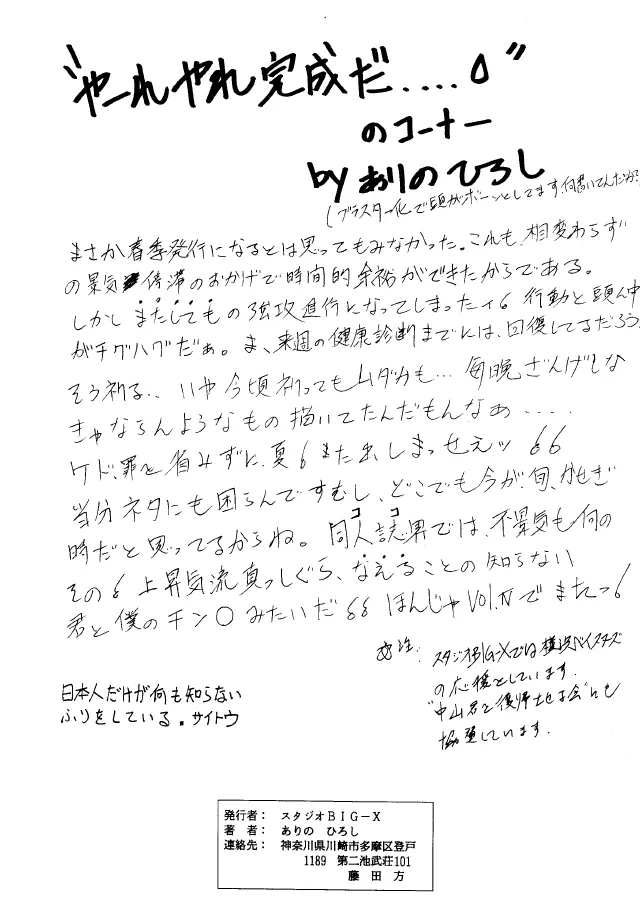 "やーれやれ完成だ....♂"
のコーナー
by ありのひろし
(ブラスター化で頭がボーッとしてます.何書いてんだか?
まさか春季発行になるとは思ってもみなかった。これも、相変わらず
の景気停滞のおかげで時間的余裕ができたからである。
しかしまたしてもの強攻進行になってしまったィ6 行動と頭ん中
がチグハグだぁ。ま、来週の健康診断までには、回復してるだろう。
そう祈る.. いや今頃祈ってもムダかも… 毎晩ざんげしな
きゃならんようなもの描いてたんだもんなぁ・・・・
ケド、罪を省みずに、夏6また出しまっせぇッ66
当分ネタにも困らんですむし、どこでも今が、旬、かせぎ
時だと思ってるからね。同人誌界では、不景気も何の
ココ
その6上昇気流真っしぐら、なえることの知らない
君と僕のチン〇みたいだ66 ほんじゃVol.Ⅳでまたっ6
スタジオBIG-Xでは横浜ベイスターズ
の応援をしています.
"中山君を復帰させる会"にも
協賛しています.
日本人だけが何も知らない
ふりをしている。サイトウ
発行者： スタジオＢＩＧ－Ｘ
著 者： ありの ひろし
連絡先： 神奈川県川崎市多摩区登戸
1189 第二池武荘101
藤 田 方